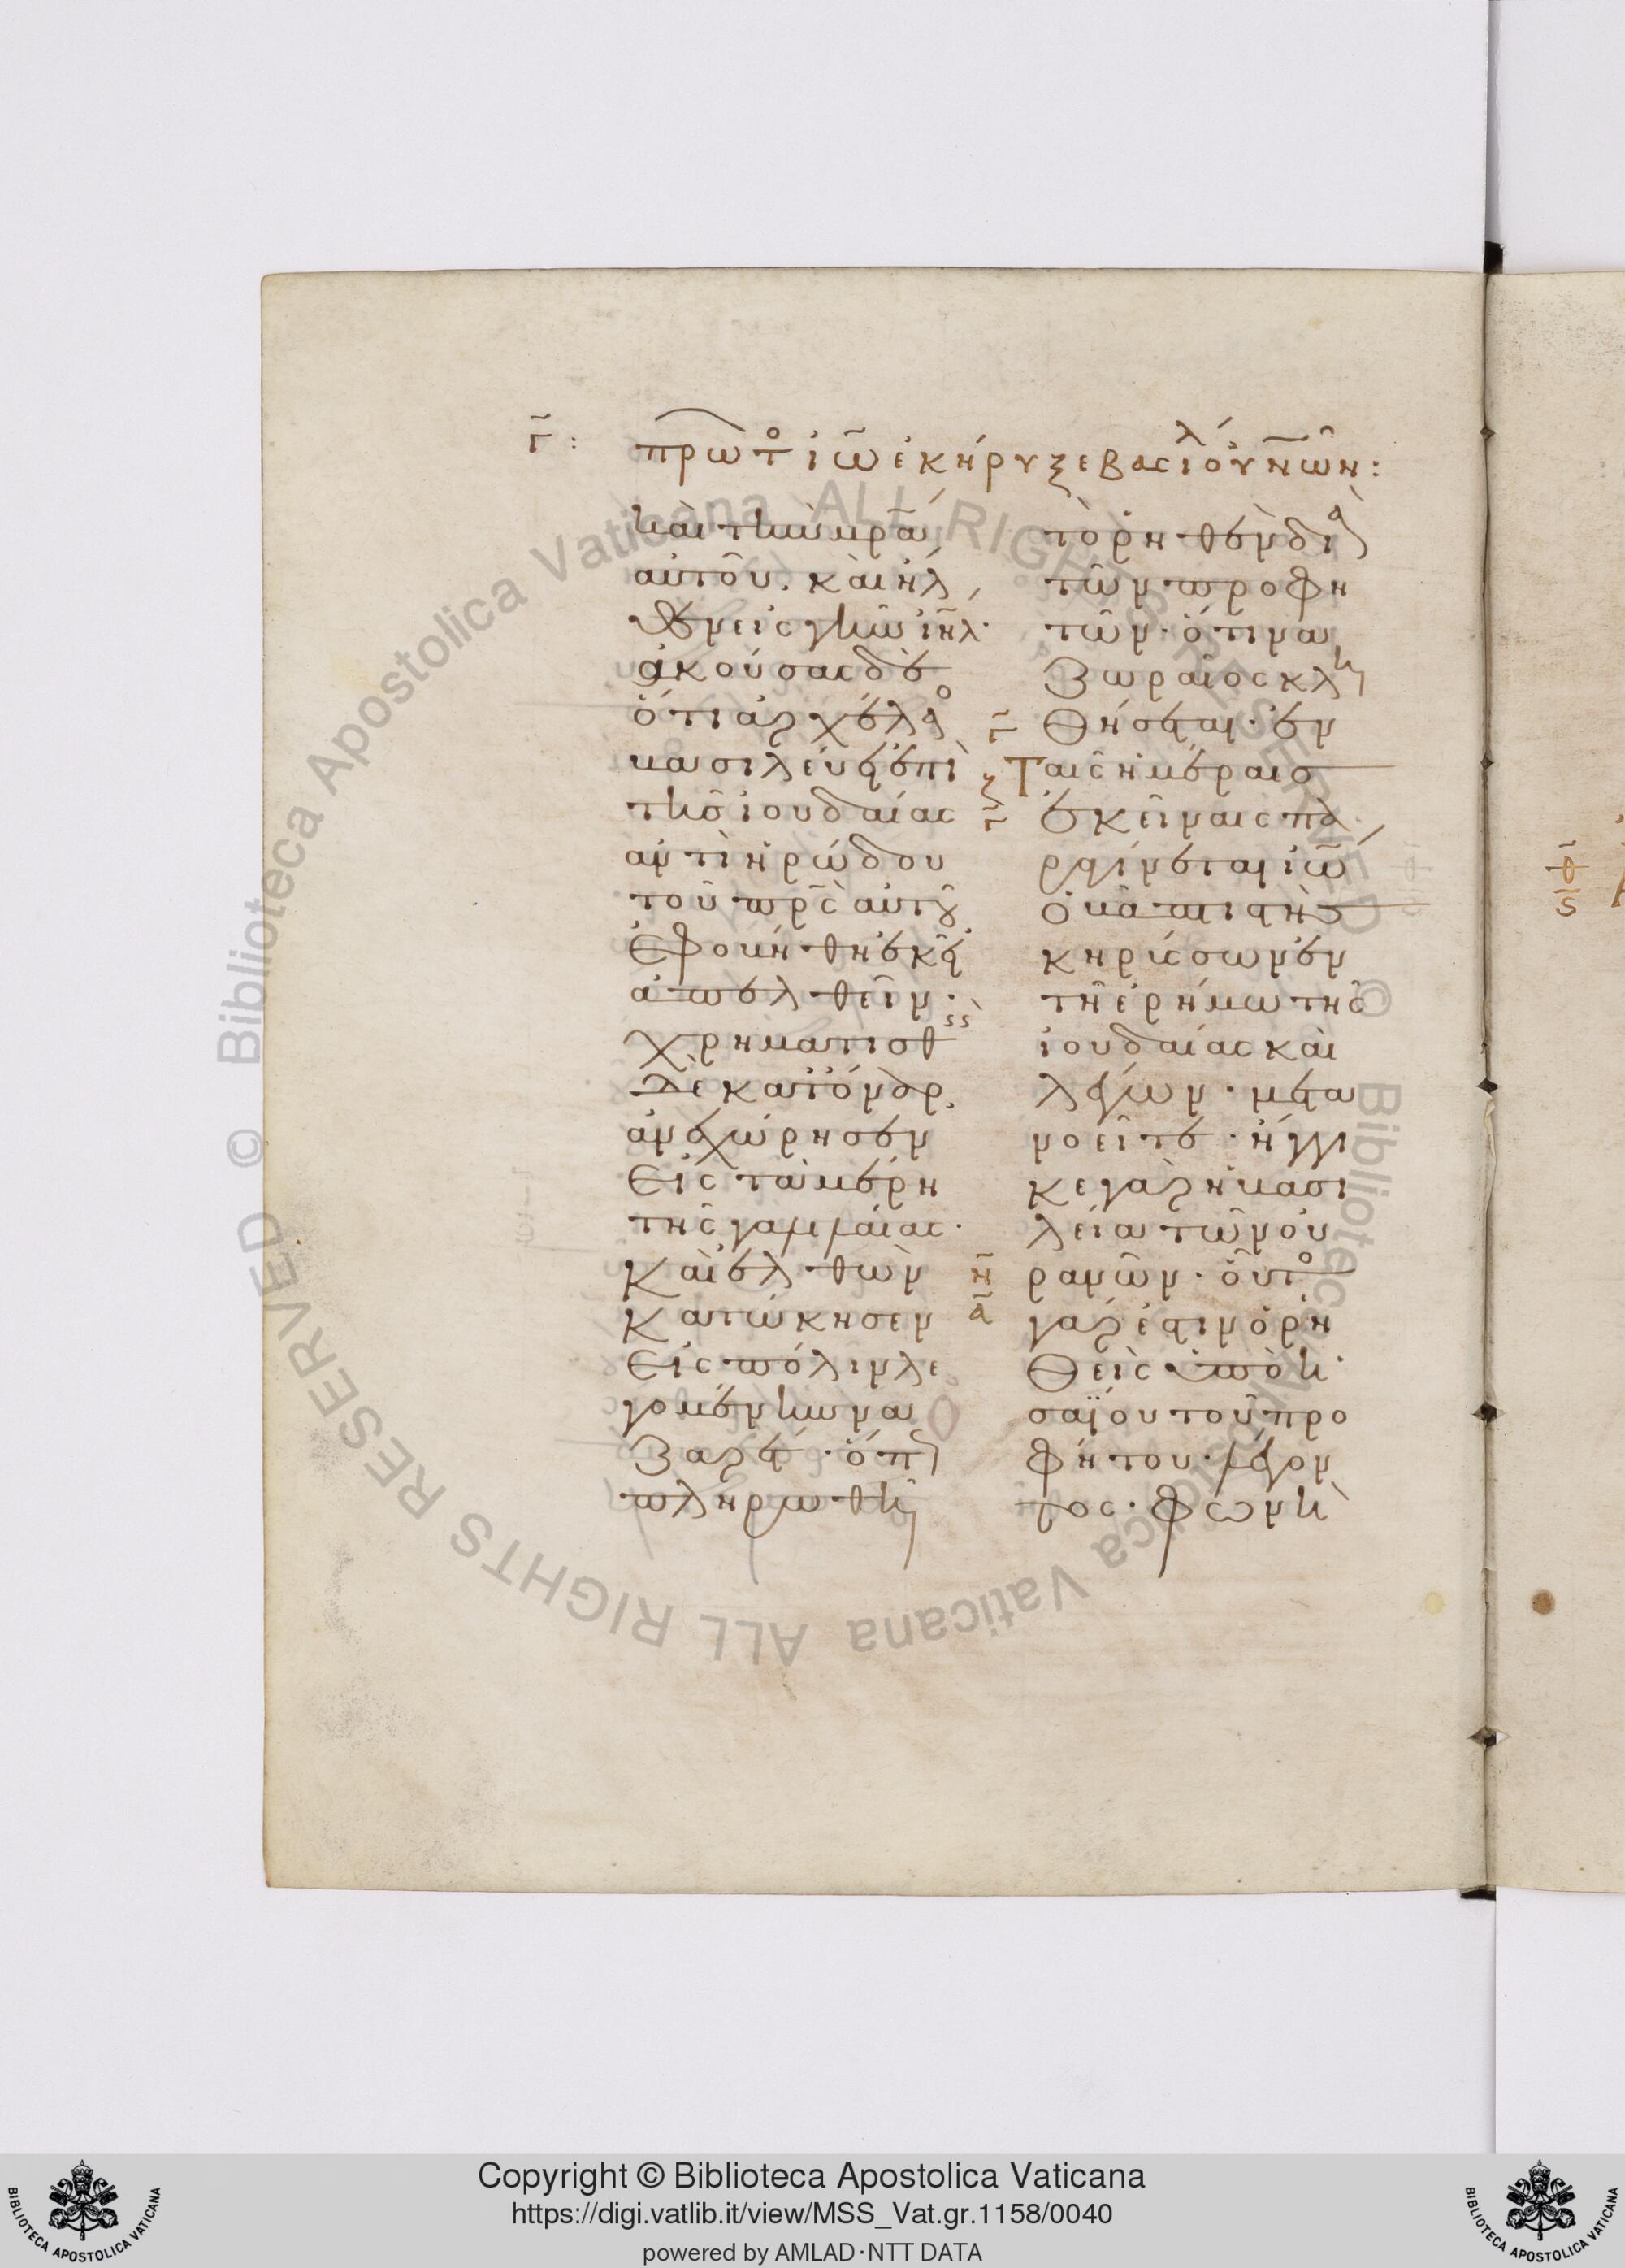 γ̄ :
πρωτ ἰω̃ ἐκήρυξε βασιλ οὐνων :
καὶ τὴν μρ̄α
αὐτοῦ. καὶ ἦλ
θεν εἰς γῆν ἰη̄λ·
ἀκούσας δὲ
ὅτι ἀρχέλαο
βασιλεύει ἐπὶ
τῆς ἰουδαίας
ἀντὶ ἡρώδου
τοῦ πρ̄ς αὐτοῦ
ἐφοβήθη ἐκεῖ
ἀπελθεῖν·
χρηματισθεὶς
δὲ κατόναρ,
ἀνεχώρησεν
εἰς τὰ μέρη
τῆς γαλιλαίας·
καὶ ἐλθὼν
κατώκησεν
εἰς πόλιν λε
γομένην να
ζαρέτ· ὅπ
πληρωθῆ
τὸ ῥηθὲν διὰ
τῶν προφη
τῶν· ὅτι να
ζωραῖος κλη
γ̄ θήσεται· ἐν
ζ ταῖς ἡμέραις
γ̄ ἐκείναις πα
ραγίνεται ἰω̃
ὁ βαπτιστὴς
κηρύσσων ἐν
τῆ ἐρήμω τῆς
ἰουδαίας καὶ
λέγων· μετα
νοεῖτε· ἤγγι
κε γὰρ ἡ βασι
λεία τῶν οὐ
η̄ ρανῶν· οὗτο
ᾱ γάρ ἐστιν ὁ ῥη
θεὶς ὑπὸ ἡ
σαΐου τοῦ προ
φήτου λέγον
τος· φωνὴ
Copyright © Biblioteca Apostolica Vaticana
https://digi.vatlib.it/view/MSS_Vat.gr.1158/0040
powered by AMLAD·NTT DATA
BIBLIOTECA APOSTOLICA VATICANA
BIBLIOTECA APOSTOLICA VATICANA
© Biblioteca Apostolica Vaticana ALL RIGHTS RESERVED © Biblioteca Apostolica Vaticana ALL RIGHTS RESERVED